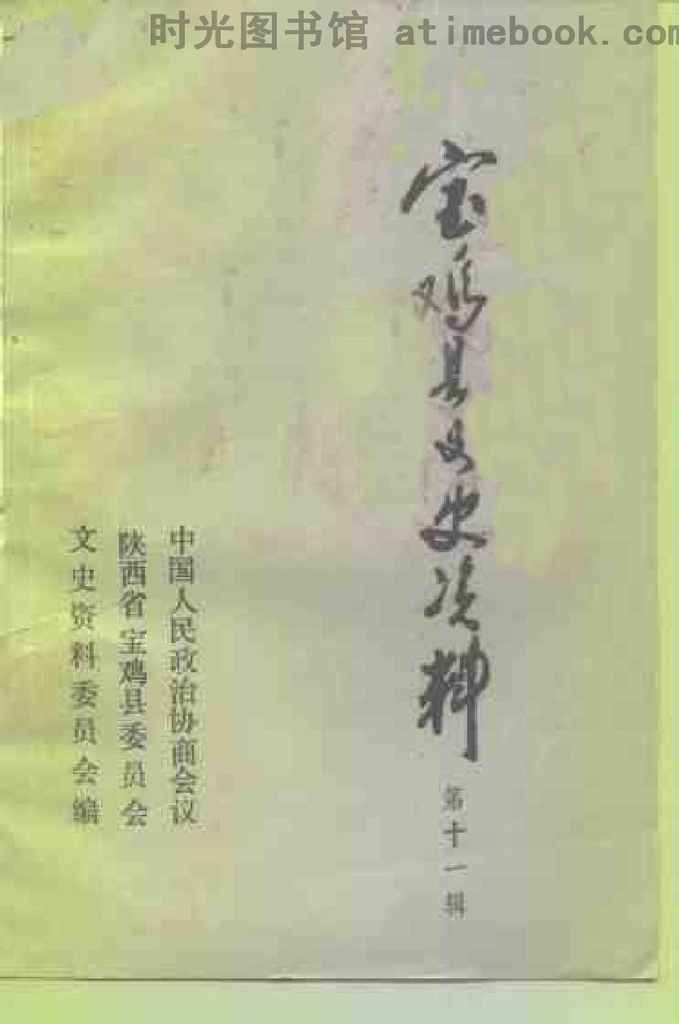 时光图书馆 atimebook.com
宝鸡县文史资料
第十一辑
中国人民政治协商会议
陕西省宝鸡县委员会
文史资料委员会编